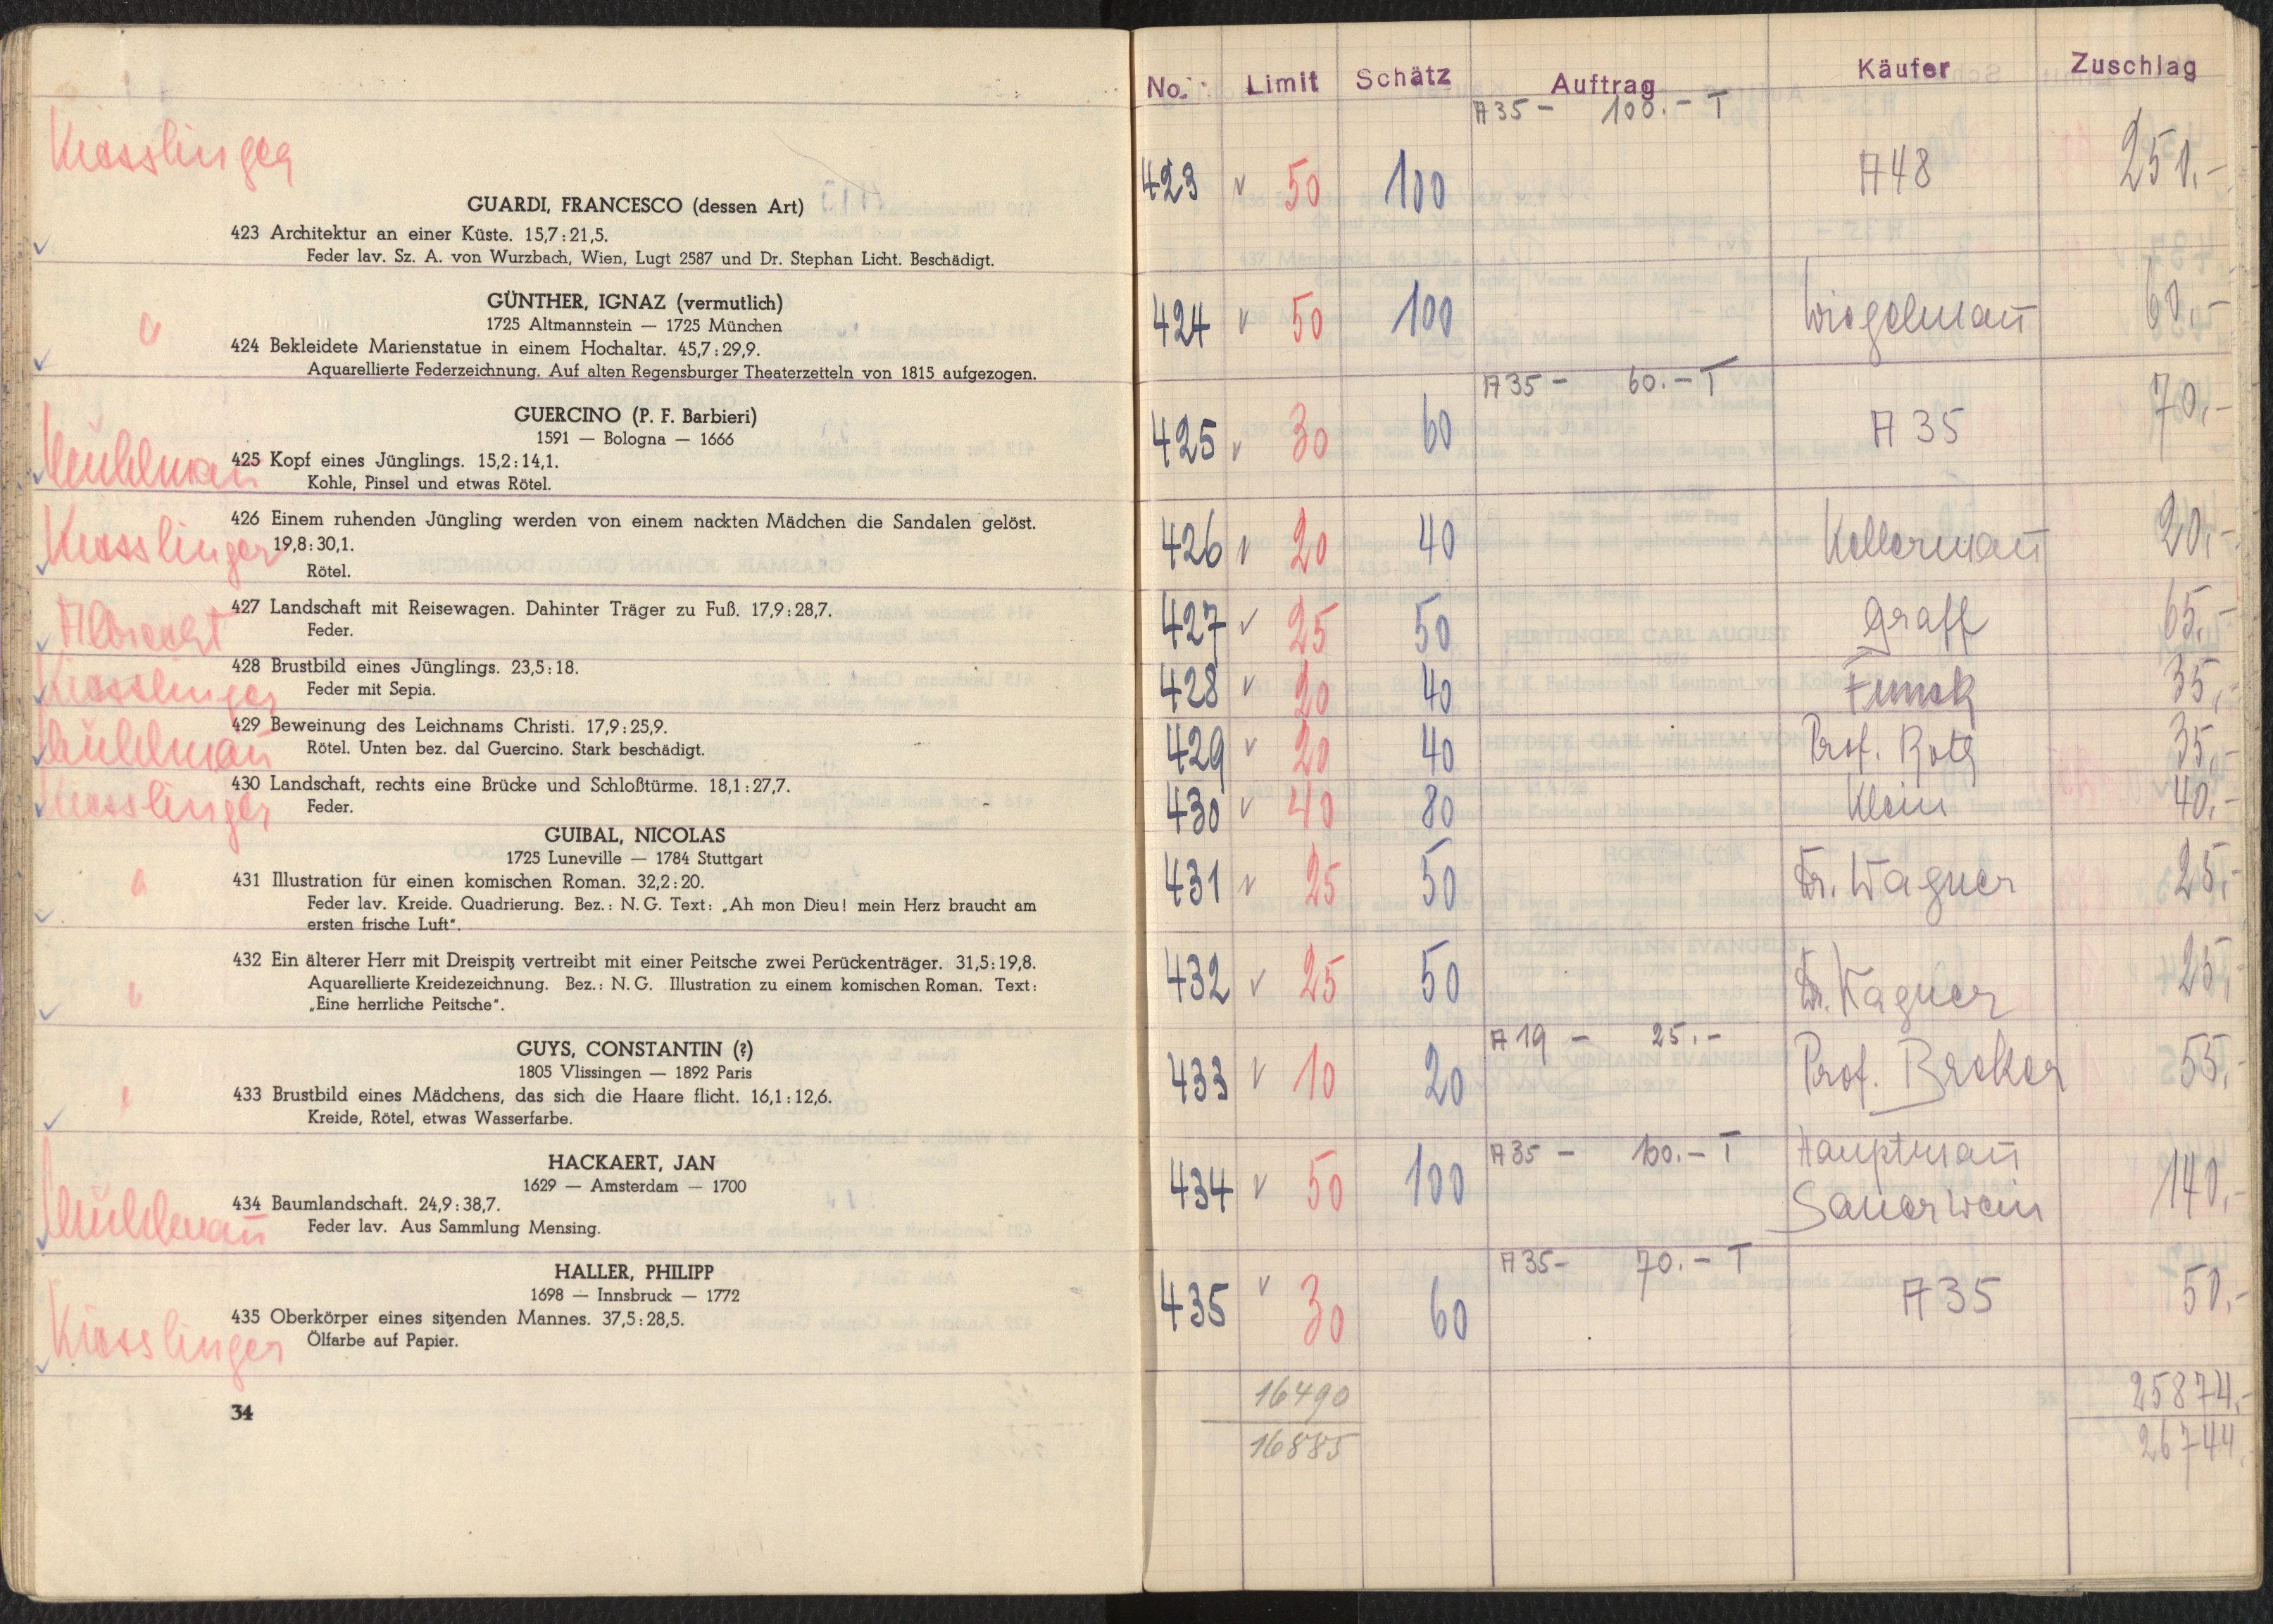 Kieslinger
GUARDI, FRANCESCO (dessen Art)
423 Architektur an einer Küste. 15,7:21,5.
Feder lav. Sz. A. von Wurzbach, Wien, Lugt 2587 und Dr. Stephan Licht. Beschädigt.
GÜNTHER, IGNAZ (vermutlich)
1725 Altmannstein — 1725 München
424 Bekleidete Marienstatue in einem Hochaltar. 45,7:29,9.
Aquarellierte Federzeichnung. Auf alten Regensburger Theaterzetteln von 1815 aufgezogen.
GUERCINO (P. F. Barbieri)
1591 — Bologna — 1666
Mühlmañ
425 Kopf eines Jünglings. 15,2:14,1.
Kohle, Pinsel und etwas Rötel.
426 Einem ruhenden Jüngling werden von einem nackten Mädchen die Sandalen gelöst.
Kieslinger 19,8:30,1.
Rötel.
Albrecht
427 Landschaft mit Reisewagen. Dahinter Träger zu Fuß. 17,9:28,7.
Feder.
Kieslinger
428 Brustbild eines Jünglings. 23,5:18.
Feder mit Sepia.
Mühlmañ
429 Beweinung des Leichnams Christi. 17,9:25,9.
Rötel. Unten bez. dal Guercino. Stark beschädigt.
Kieslinger
430 Landschaft, rechts eine Brücke und Schloßtürme. 18,1:27,7.
Feder.
GUIBAL, NICOLAS
1725 Luneville — 1784 Stuttgart
431 Illustration für einen komischen Roman. 32,2:20.
Feder lav. Kreide. Quadrierung. Bez.: N. G. Text: „Ah mon Dieu! mein Herz braucht am
ersten frische Luft“.
432 Ein älterer Herr mit Dreispitz vertreibt mit einer Peitsche zwei Perückenträger. 31,5:19,8.
Aquarellierte Kreidezeichnung. Bez.: N. G. Illustration zu einem komischen Roman. Text:
„Eine herrliche Peitsche“.
GUYS, CONSTANTIN (?)
1805 Vlissingen — 1892 Paris
433 Brustbild eines Mädchens, das sich die Haare flicht. 16,1:12,6.
Kreide, Rötel, etwas Wasserfarbe.
HACKAERT, JAN
1629 — Amsterdam — 1700
Mühlmañ
434 Baumlandschaft. 24,9:38,7.
Feder lav. Aus Sammlung Mensing.
HALLER, PHILIPP
1698 — Innsbruck — 1772
Kieslinger
435 Oberkörper eines sitzenden Mannes. 37,5:28,5.
Ölfarbe auf Papier.
34
No. Limit Schätz Auftrag Käufer Zuschlag
A 35 - 100.- T
423 50 100 A 48 250.-
424 50 100 60,-
A 35 - 60.- T
425 30 60 A 35 70,-
426 20 40 Kellermañ 20,-
427 25 50 Graff 65,-
428 20 40 Funck 35,-
429 20 40 Prof. Roth 35,-
430 40 80 Klein 40,-
431 25 50 Dr. Wagner 25,-
432 25 50 Dr. Wagner 25,-
A 19 - 25.-
433 10 20 Prof. Breker 55,-
A 35 - 100.- T
434 50 100 Hauptmañ Sauerwein 140,-
A 35 - 70.- T
435 30 60 A 35 50,-
16490 25874,-
16885 26744,